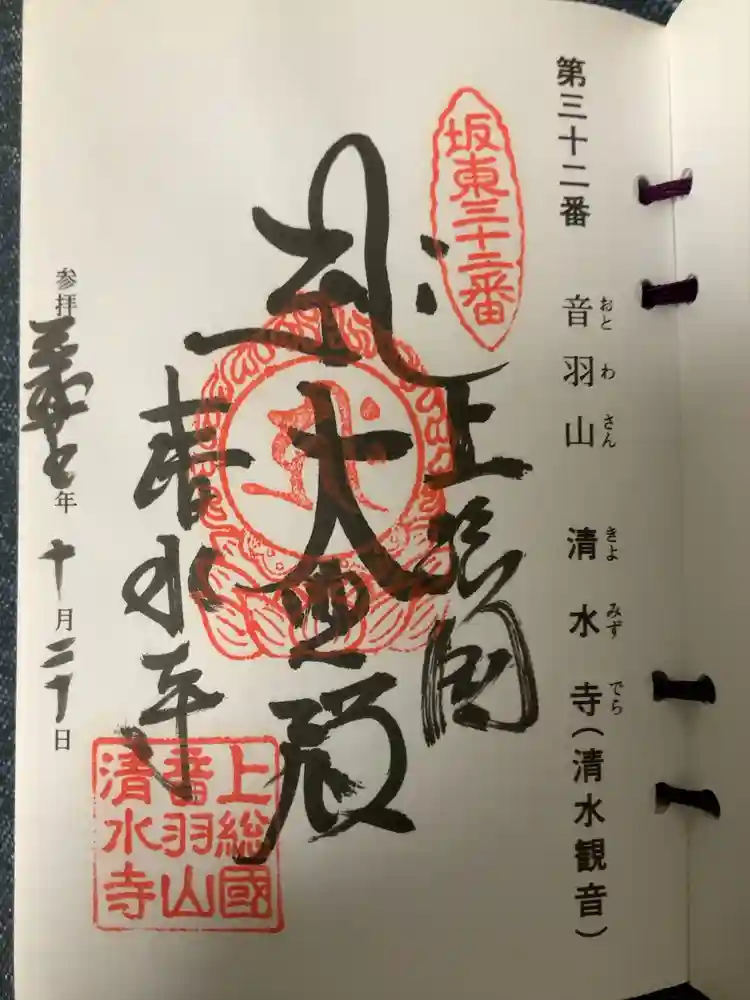 第三十二番 音羽山 清水寺(清水観音)
おとわさん きよみずでら
坂東三十二番
上総國
大悲殿
清水寺
上総國
音羽山
清水寺
参拝 年十月二十日